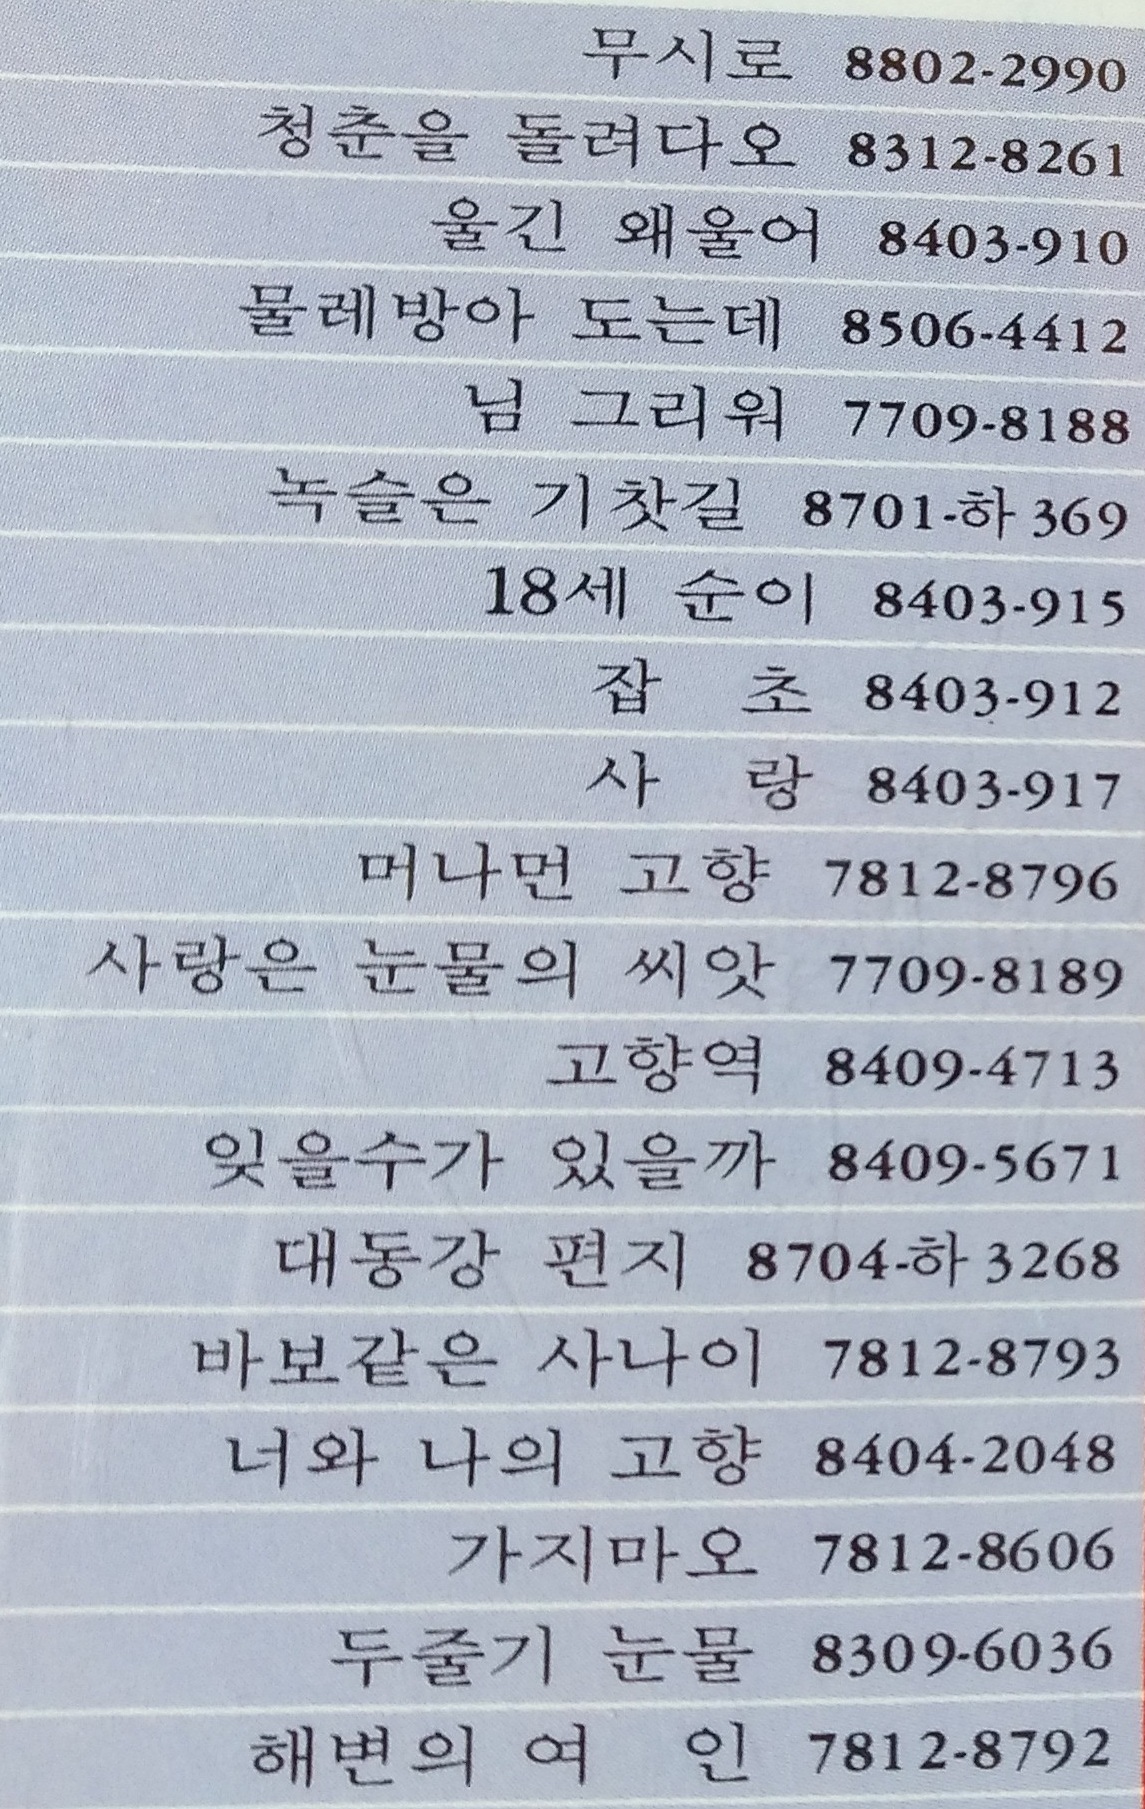 무시로 8802-2990
청춘을 돌려다오 8312-8261
울긴 왜울어 8403-910
물레방아 도는데 8506-4412
님 그리워 7709-8188
녹슬은 기찻길 8701-하 369
18세 순이 8403-915
잡 초 8403-912
사 랑 8403-917
머나먼 고향 7812-8796
사랑은 눈물의 씨앗 7709-8189
고향역 8409-4713
잊을수가 있을까 8409-5671
대동강 편지 8704-하 3268
바보같은 사나이 7812-8793
너와 나의 고향 8404-2048
가지마오 7812-8606
두줄기 눈물 8309-6036
해변의 여 인 7812-8792